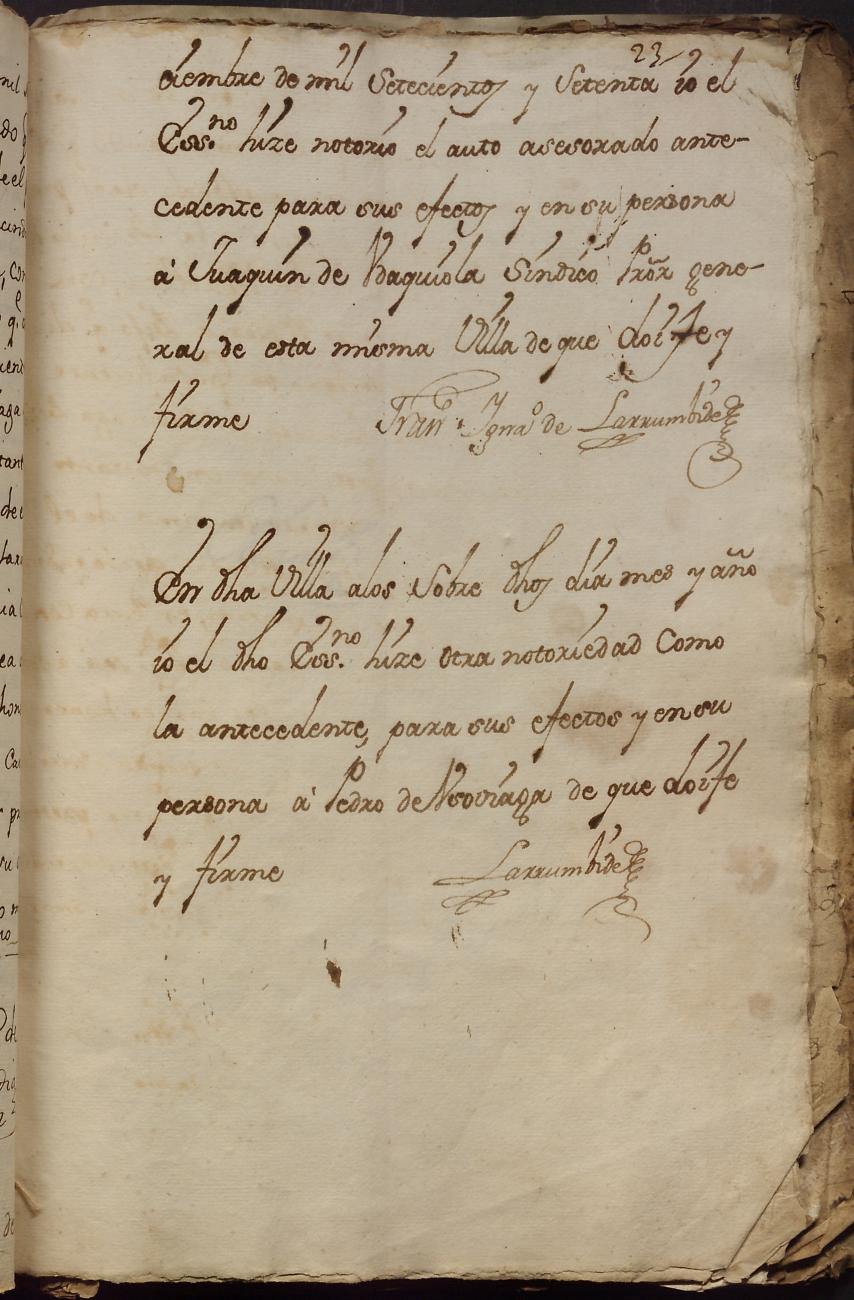 23
ciembre de mil Setecientos y Setenta io el
Ess.no hize notorio el auto asesorado ante-
cedente para sus efectos y en su persona
à Juaquin de Vbaquiola Sindico Pror gene-
ral de esta misma Villa de que doi fe y
firme Fran.co Ignaº de Larrumbide
En dha Villa a los Sobre dhos dia mes y año
io el dho Ess.no hize otra notoriedad Como
la antecedente, para sus efectos y en su
persona à Pedro de de que doi fe
y firme Larrumbide